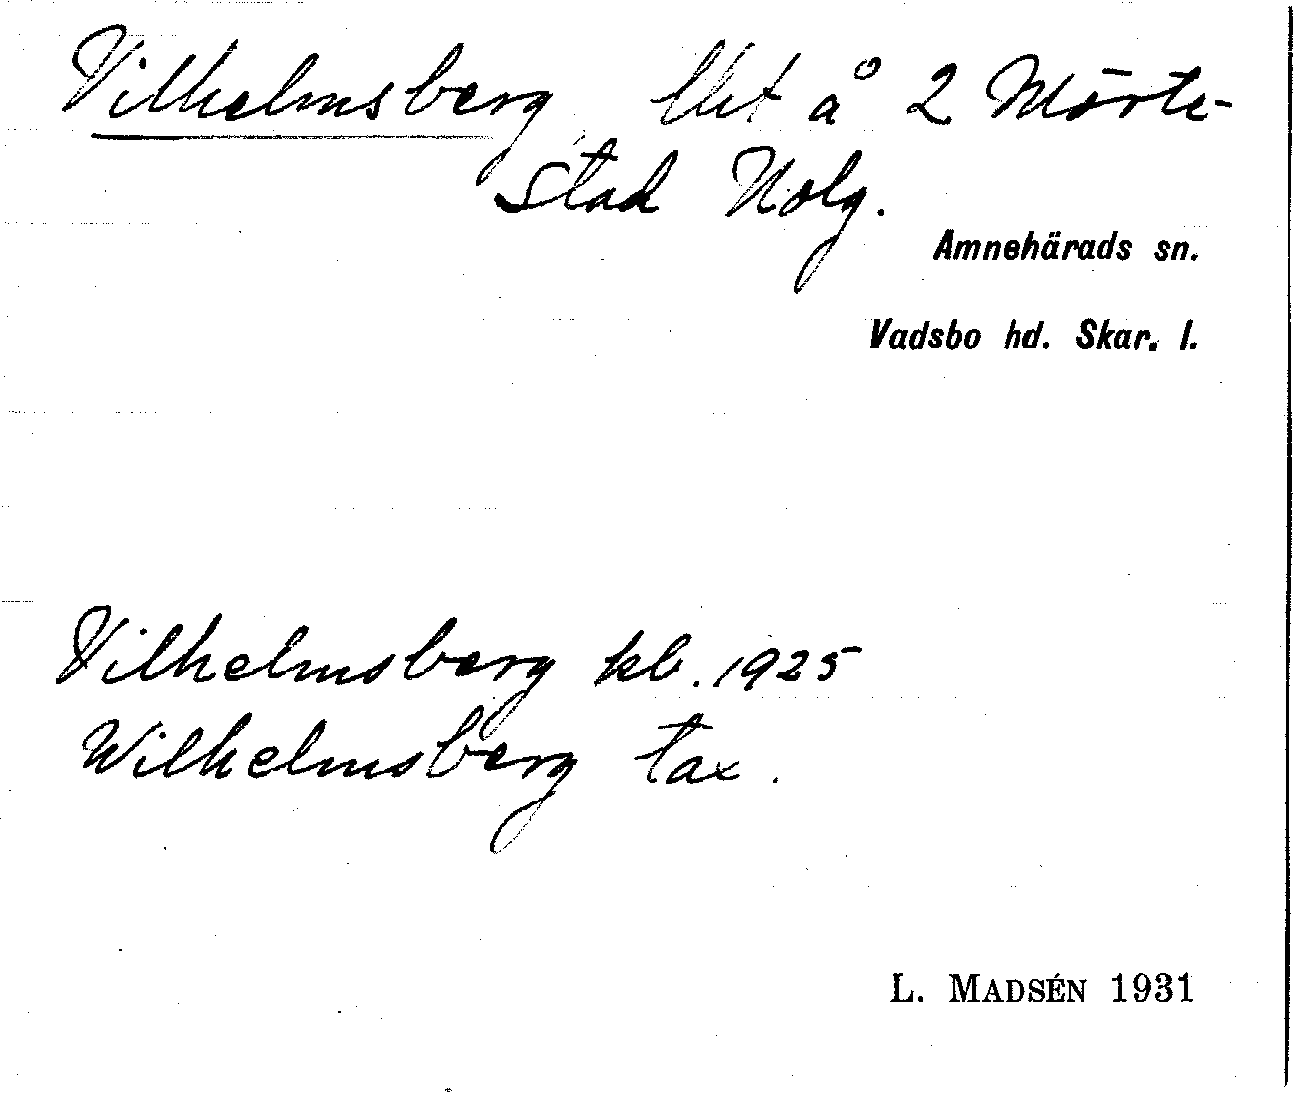 Vilhelmsberg lht å 2 Mörte-
stad Nolg.
Amnehärads sn.
Vadsbo hd. Skar. l.
Vilhelmsberg kb. 1925
Wilhelmsberg tax.
L. MADSÉN 1931